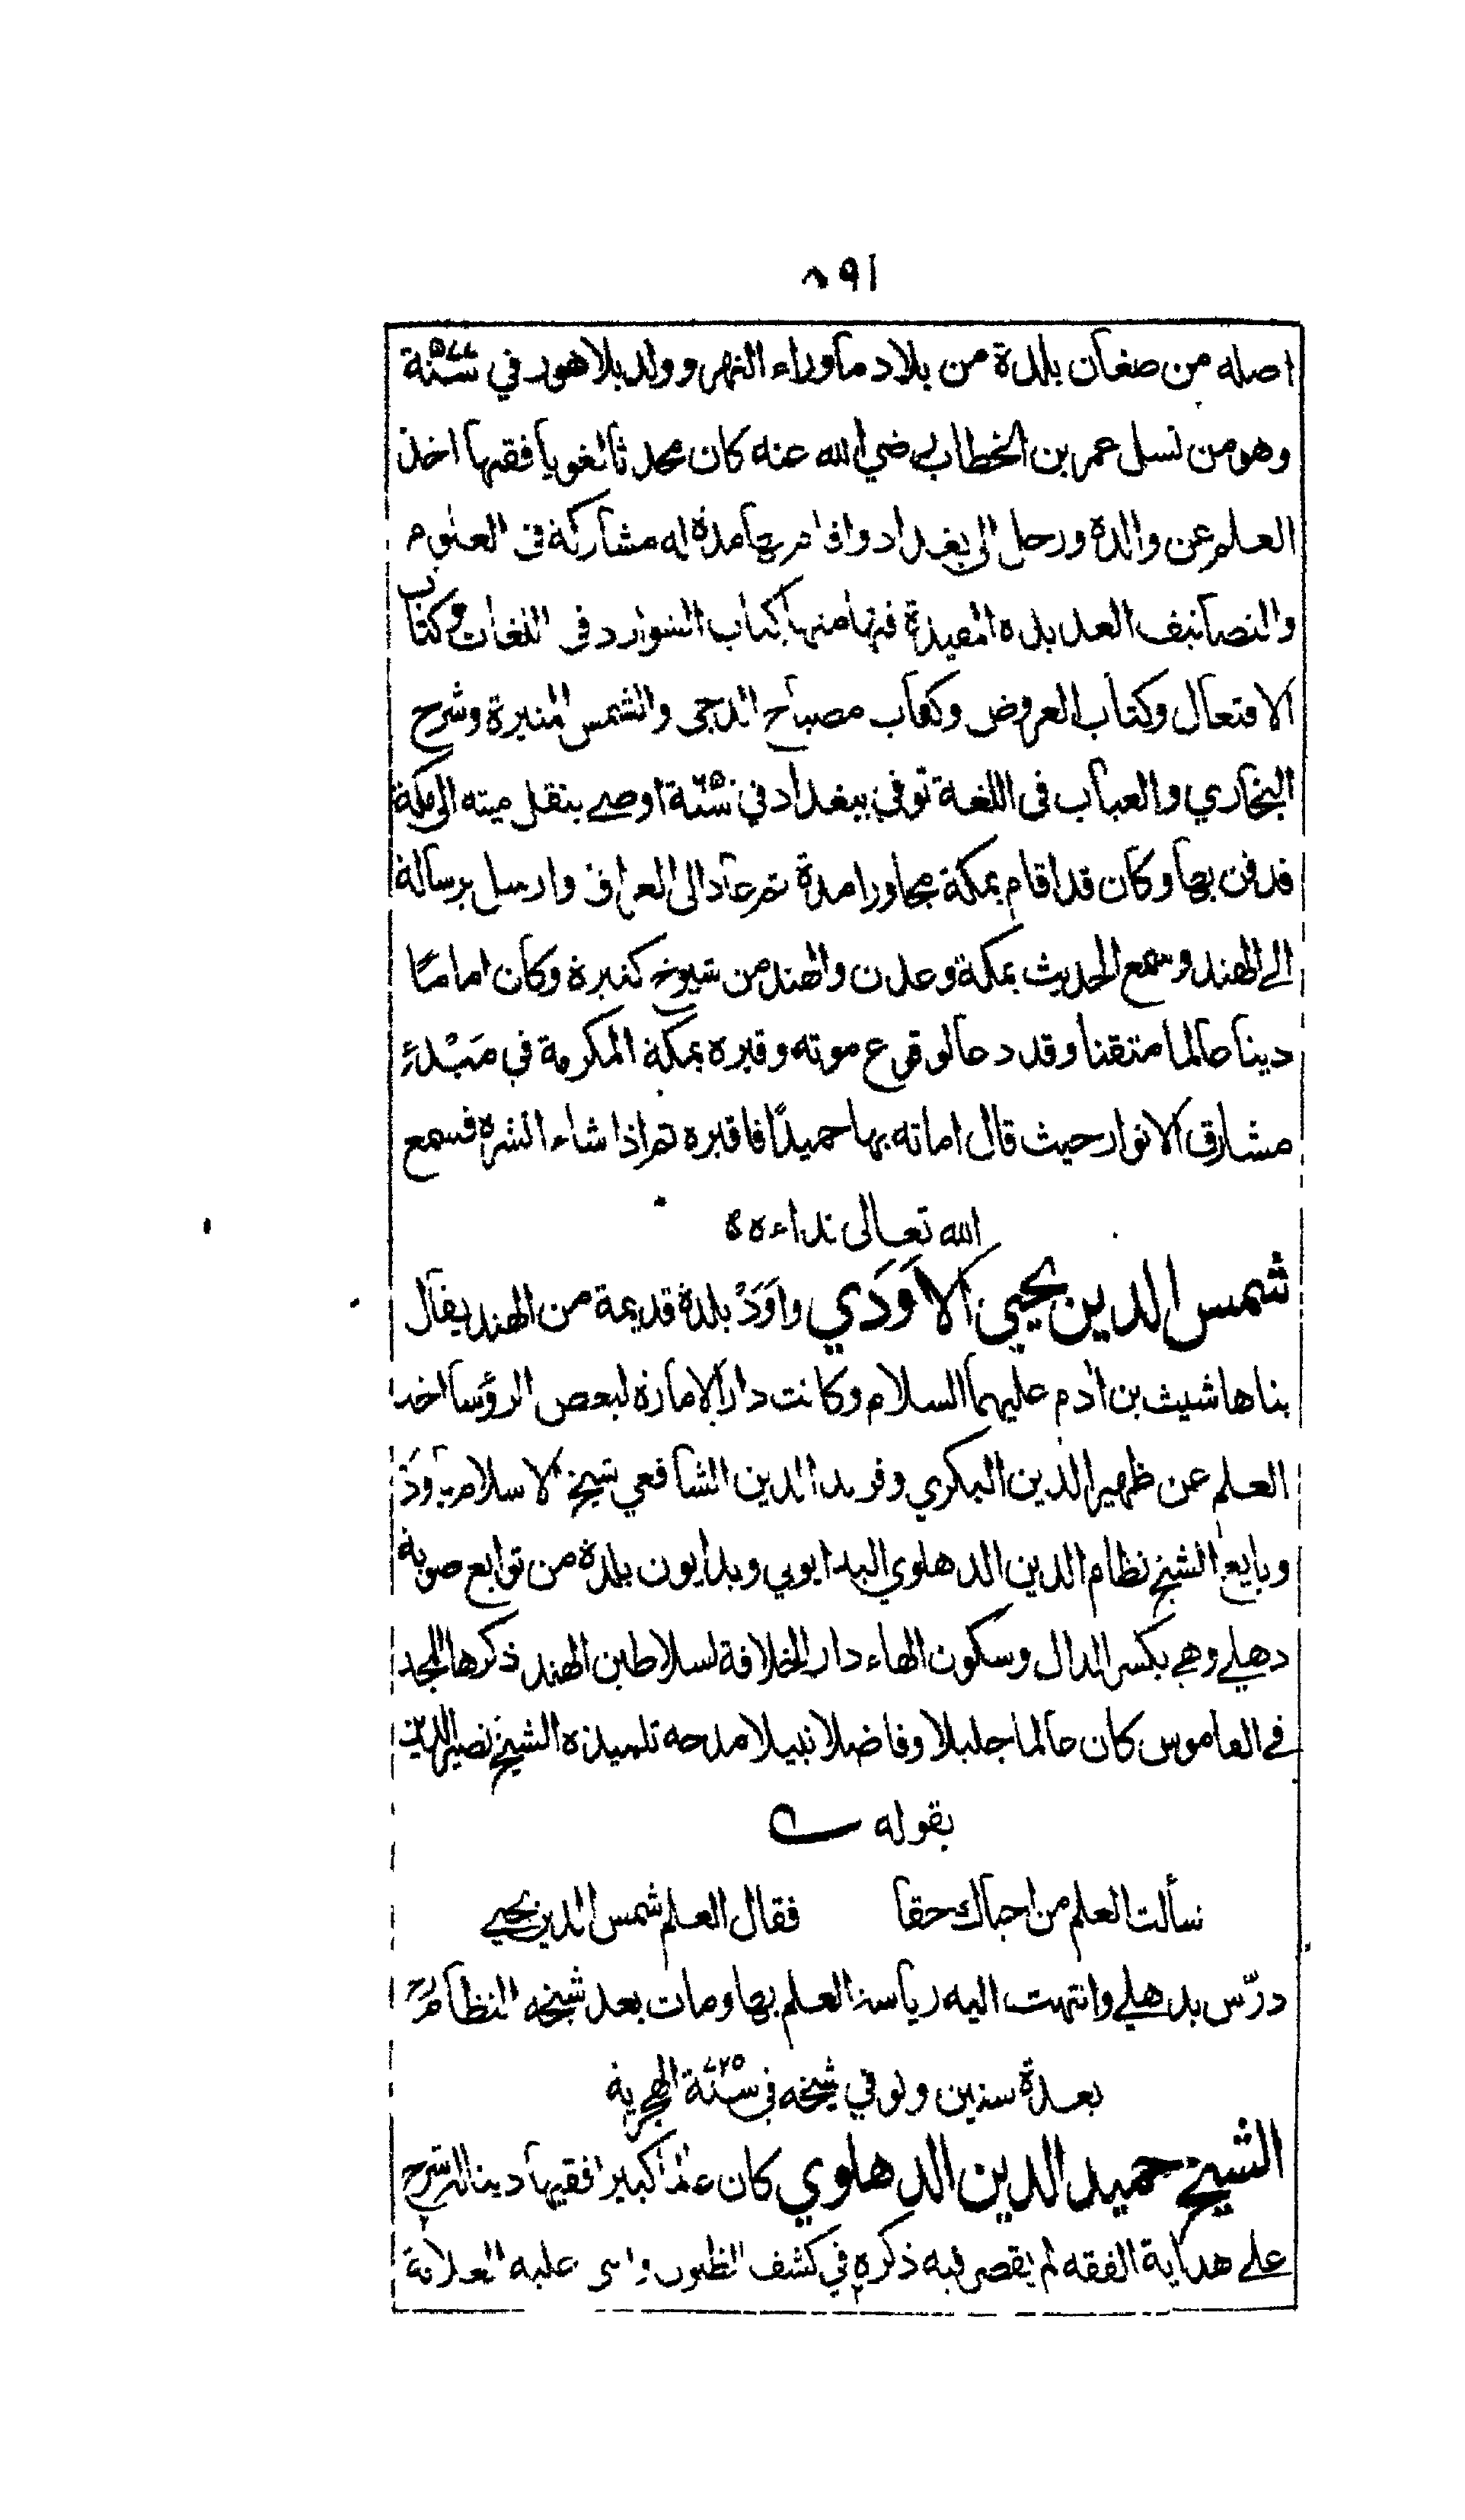 ٨٩١
اصله من صغان بلدة من بلاد ماوراء النهر وولد بلاهور في سنة ٥٧٧
وهو من نسل عمر بن الخطاب رضي الله عنه كان محدثا لغويا فقيها اخذ
العلم عن والدة ورحل الى بغداد واقام بها مدة له مشاركة فى العلوم
والتصانيف العديده المفيدة فيها منها كتاب الشوارد فى اللغات وكتاب
الافتعال وكتاب العروض وكتاب مصباح الدجى والشمس المنيرة وشرح
البخاري والعباب فى اللغة توفي ببغداد في سنة اوصى بنقل ميته الى مكة
فدفن بها وكان قد اقام بمكة مجاورا مدة ثم عاد الى العراق وارسل برسالة
الى الهند وسمع الحديث بمكة وعدن والهند من شيوخ كثيرة وكان اماما
دينا صالما متقنا وقد دعا لوقوع موته وقبره بمكة المكرمة في مَبْدءِ
مشارق الانوار حيث قال اماته بها حميدًا فاقبره ثم اذا شاء انشره فسمع
الله تعالى نداءه
شمس الدين يحيى الاَوَدَي واَوَدْ بلدة قديمة من الهند يقال
بناها شيث بن آدم عليهما السلام وكانت دار الامارة لبعض الرؤسا اخذ
العلم عن ظهير الدين البكري وفريد الدين الشافعي شيخ الاسلام باَودَ
وبايع الشيخ نظام الدين الدهلوي البدايوني وبدايون بلدة من توابع صوبة
دهلي وهي بكسر الدال وسكون الهاء دار الخلافة لسلاطين الهند ذكرها المجد
في القاموس كان عالما جليلا وفاضلا نبيلا مدحه تلميذه الشيخ نصير الدين
بقوله
سألت العلم من احياك حقا فقال العلم شمس الدين يحيى
درّس بدهلي وانتهت اليه رياسة العلم بها ومات بعد شيخه النظام
بعدة سنين وتوفي شيخه في سنة ٧٢٥ الهجرية
الشيخ حميد الدين الدهلوي كان عالما كبيرا فقيها دينا له شرح
على هداية الفقه لم يقصر فيه ذكره في كشف الظنون واثنى عليه العلامة